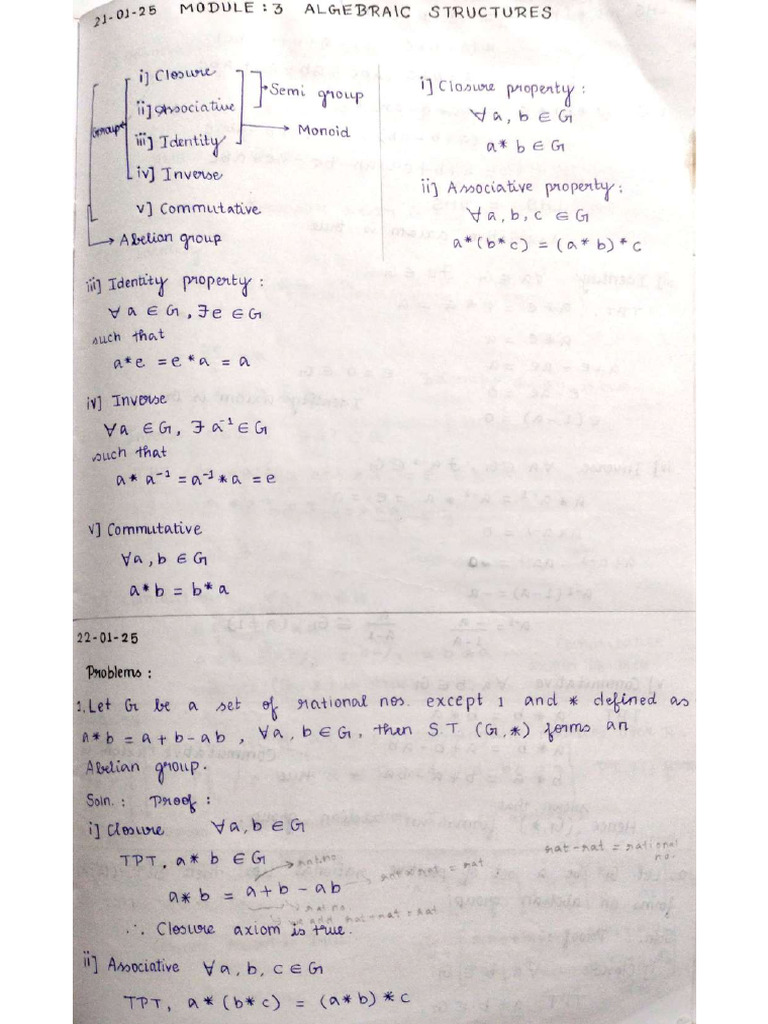 21-01-25 MODULE : 3 ALGEBRAIC STRUCTURES
i] Closure
ii] Associative
iii] Identity
iv] Inverse
v] Commutative
Group
Semi group
Monoid
Abelian group
i] Closure property :
∀ a, b ∈ G
a * b ∈ G
ii] Associative property :
∀ a, b, c ∈ G
a * (b * c) = (a * b) * c
iii] Identity property :
∀ a ∈ G, ∃ e ∈ G
such that
a * e = e * a = a
iv] Inverse
∀ a ∈ G, ∃ a⁻¹ ∈ G
such that
a * a⁻¹ = a⁻¹ * a = e
v] Commutative
∀ a, b ∈ G
a * b = b * a
22-01-25
Problems :
1. Let G be a set of rational nos. except 1 and * defined as
a * b = a + b - ab, ∀ a, b ∈ G, then S.T (G, *) forms an
Abelian group.
Soln. : Proof :
i] Closure ∀ a, b ∈ G
TPT, a * b ∈ G
rat-rat = rational
no.
rat.no.
a * b = a + b - ab
rat × rat = rat
rat no.
we add rat-rat = rat
∴ Closure axiom is true.
ii] Associative ∀ a, b, c ∈ G
TPT, a * (b * c) = (a * b) * c